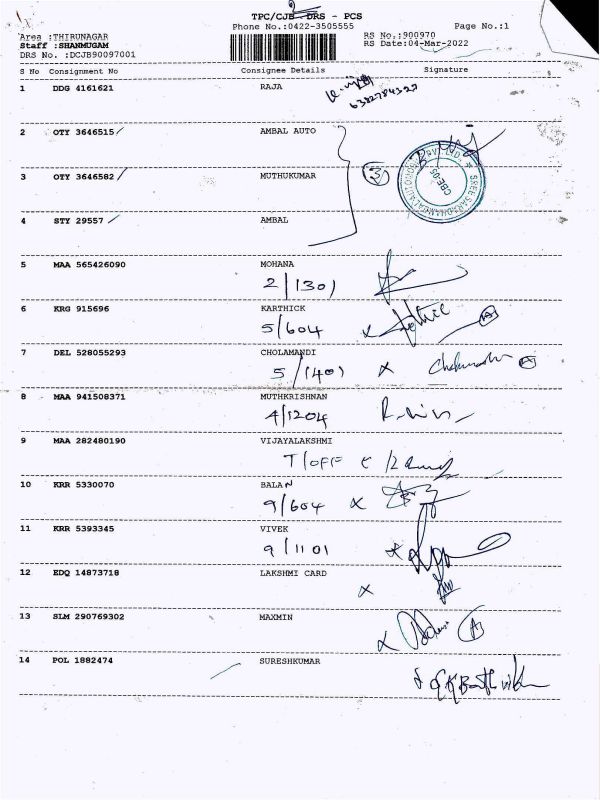 TPC/CJB DRS - PCS
Phone No.:0422-3505555 Page No.:1
Area :THIRUNAGAR RS No.:900970
Staff :SHANMUGAM RS Date:04-Mar-2022
DRS No. :DCJB90097001
S No Consignment No Consignee Details Signature
1 DDG 4161621 RAJA
6382784327
2 OTY 3646515 AMBAL AUTO
3 OTY 3646582 MUTHUKUMAR 3
CBE-05
4 STY 29557 AMBAL
5 MAA 565426090 MOHANA
2/1301
6 KRG 915696 KARTHICK
5/604 x A
7 DEL 528055293 CHOLAMANDI
5/1401 x A
8 MAA 941508371 MUTHKRISHNAN
4/1204
9 MAA 282480190 VIJAYALAKSHMI
T/OFF
10 KRR 5330070 BALAN
9/604 x
11 KRR 5393345 VIVEK
9/1101 x
12 EDQ 14873718 LAKSHMI CARD
x
13 SLM 290769302 MAXMIN
x A
14 POL 1882474 SURESHKUMAR